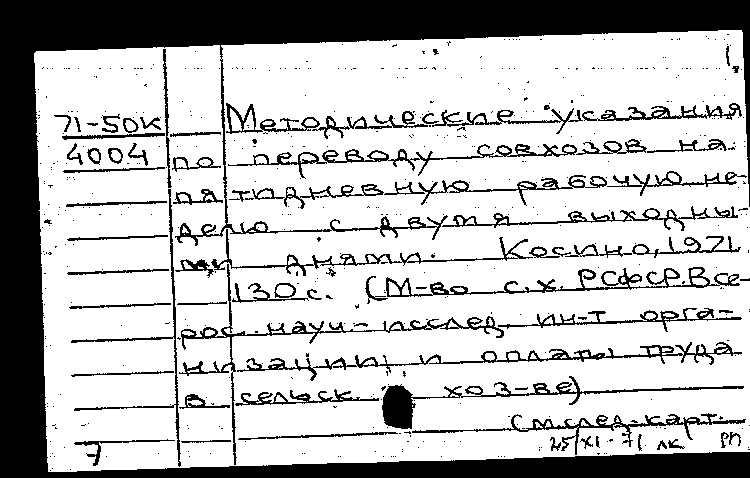 1.
71-50К Методические указания
4004 по переводу совхозов на
пятидневную рабочую не-
делю с двумя выходны-
ми днями. Косино, 1971
130с. (М-во с.х. РСФСР. Все-
рос. науч.-исслед. ин-т орга-
низации и оплаты труда
в сельск. хоз-ве)
См.след.карт.
7 25/XI-71 лк РП